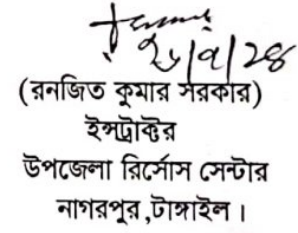 ২৮/৭/২৪
(রনজিত কুমার সরকার)
ইন্সট্রাক্টর
উপজেলা রির্সোস সেন্টার
নাগরপুর,টাঙ্গাইল।